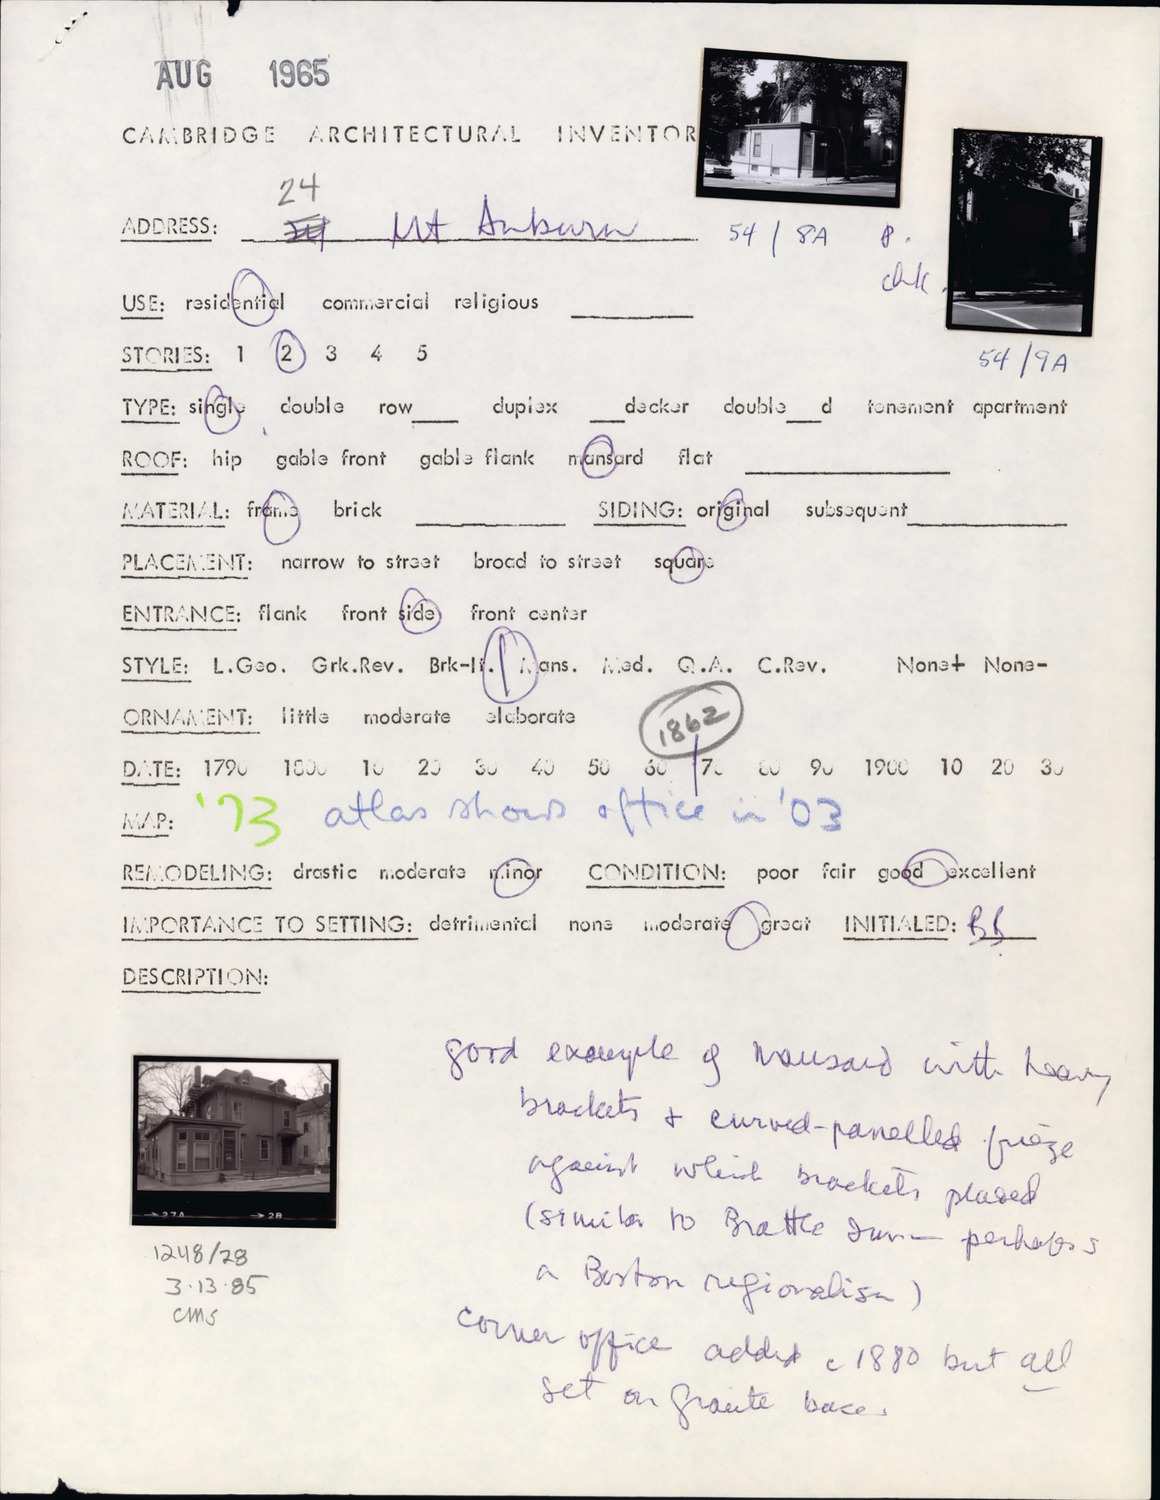 AUG 1965
CAMBRIDGE ARCHITECTURAL INVENTOR
24
ADDRESS: Mt Auburn
54 / 8A
chk.
54/9A
USE: residential commercial religious
STORIES: 1 2 3 4 5
TYPE: single double row___ duplex ___decker double___d tenement apartment
ROOF: hip gable front gable flank mansard flat
MATERIAL: frame brick SIDING: original subsequent
PLACEMENT: narrow to street broad to street square
ENTRANCE: flank front side front center
STYLE: L.Geo. Grk.Rev. Brk-It. Mans. Med. Q.A. C.Rev. None+ None-
ORNAMENT: little moderate elaborate
1862
DATE: 1790 1800 10 20 30 40 50 60 70 80 90 1900 10 20 30
MAP: '73 atlas shows office in '03
REMODELING: drastic moderate minor CONDITION: poor fair good excellent
IMPORTANCE TO SETTING: detrimental none moderate great INITIALED: BB
DESCRIPTION:
good example of Mansard with heavy
brackets + curved-panelled frieze
against which brackets placed
(similar to Brattle Inn — perhaps
a Boston regionalism)
corner office added c 1880 but all
set on granite base.
27A 28
1248/28
3.13.85
CMS